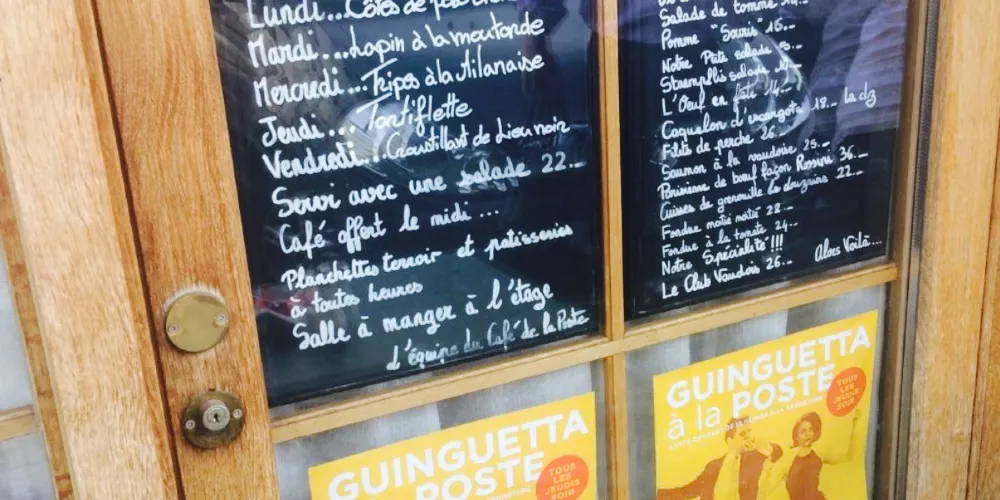 Lundi...Côtes de
Mardi....Lapin à la moutarde
Mercredi...Tripes à la Milanaise
Jeudi....Tartiflette
Vendredi...Croustillant de Lieu noir
Servi avec une salade 22.-
Café offert le midi...
Planchettes terroir et patisseries
à toutes heures
Salle à manger à l'étage
L'équipe du Café de la Poste
Salade de tomme 14.-
Pomme "Souris" 15.-
Notre P'tite salade
Staempflis salade
L'Oeuf en fête 14.-
Caquelon d'escargots 18.- la dz
Filets de perche 26.-
Saumon à la vaudoise 25.-
Parisienne de bœuf façon Rossini 36.-
Cuisses de grenouille la douzaine 22.-
Fondue moitié moitié 22.-
Fondue à la tomate 24.-
Notre Spécialité!!!
Le Club Vaudois 26.- Alors Voilà...
GUINGUETTA
POSTE
TOUS
LES JEUDIS
SOIR
GUINGUETTA
à la POSTE
TOUS
LES JEUDIS
SOIR